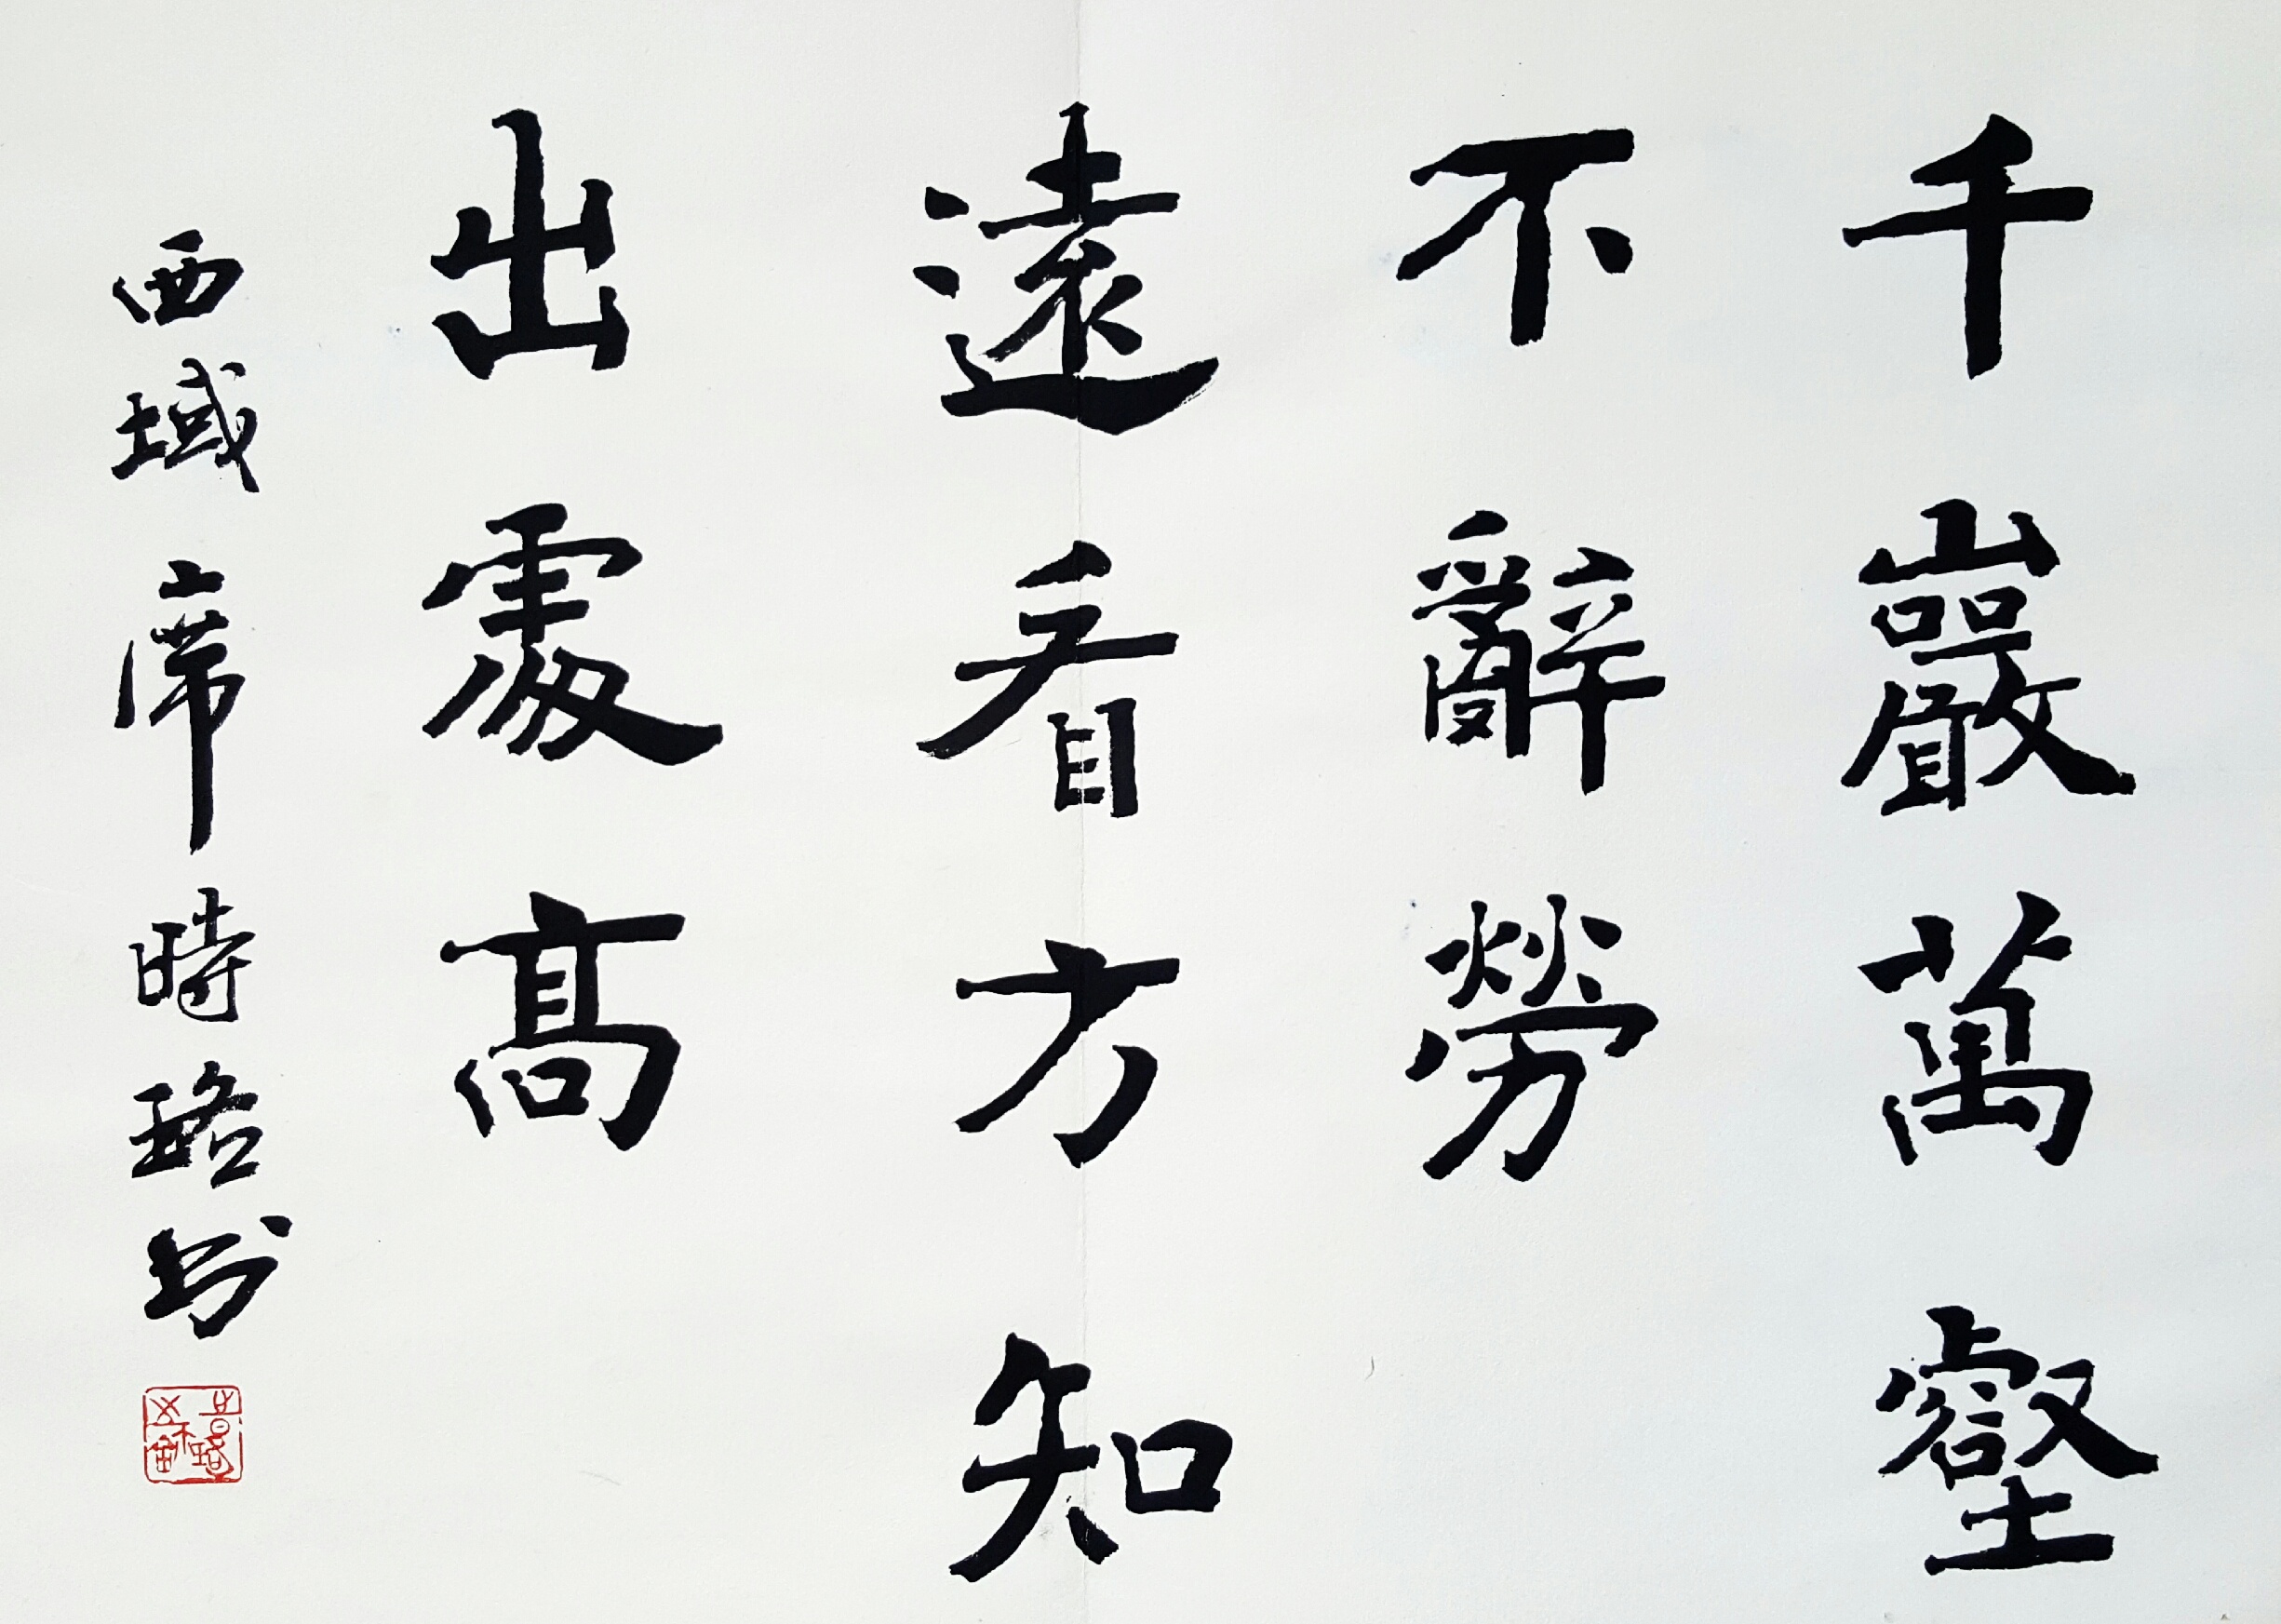 千巖萬壑
不辭勞
遠看方知
出處高
西域席時珞书